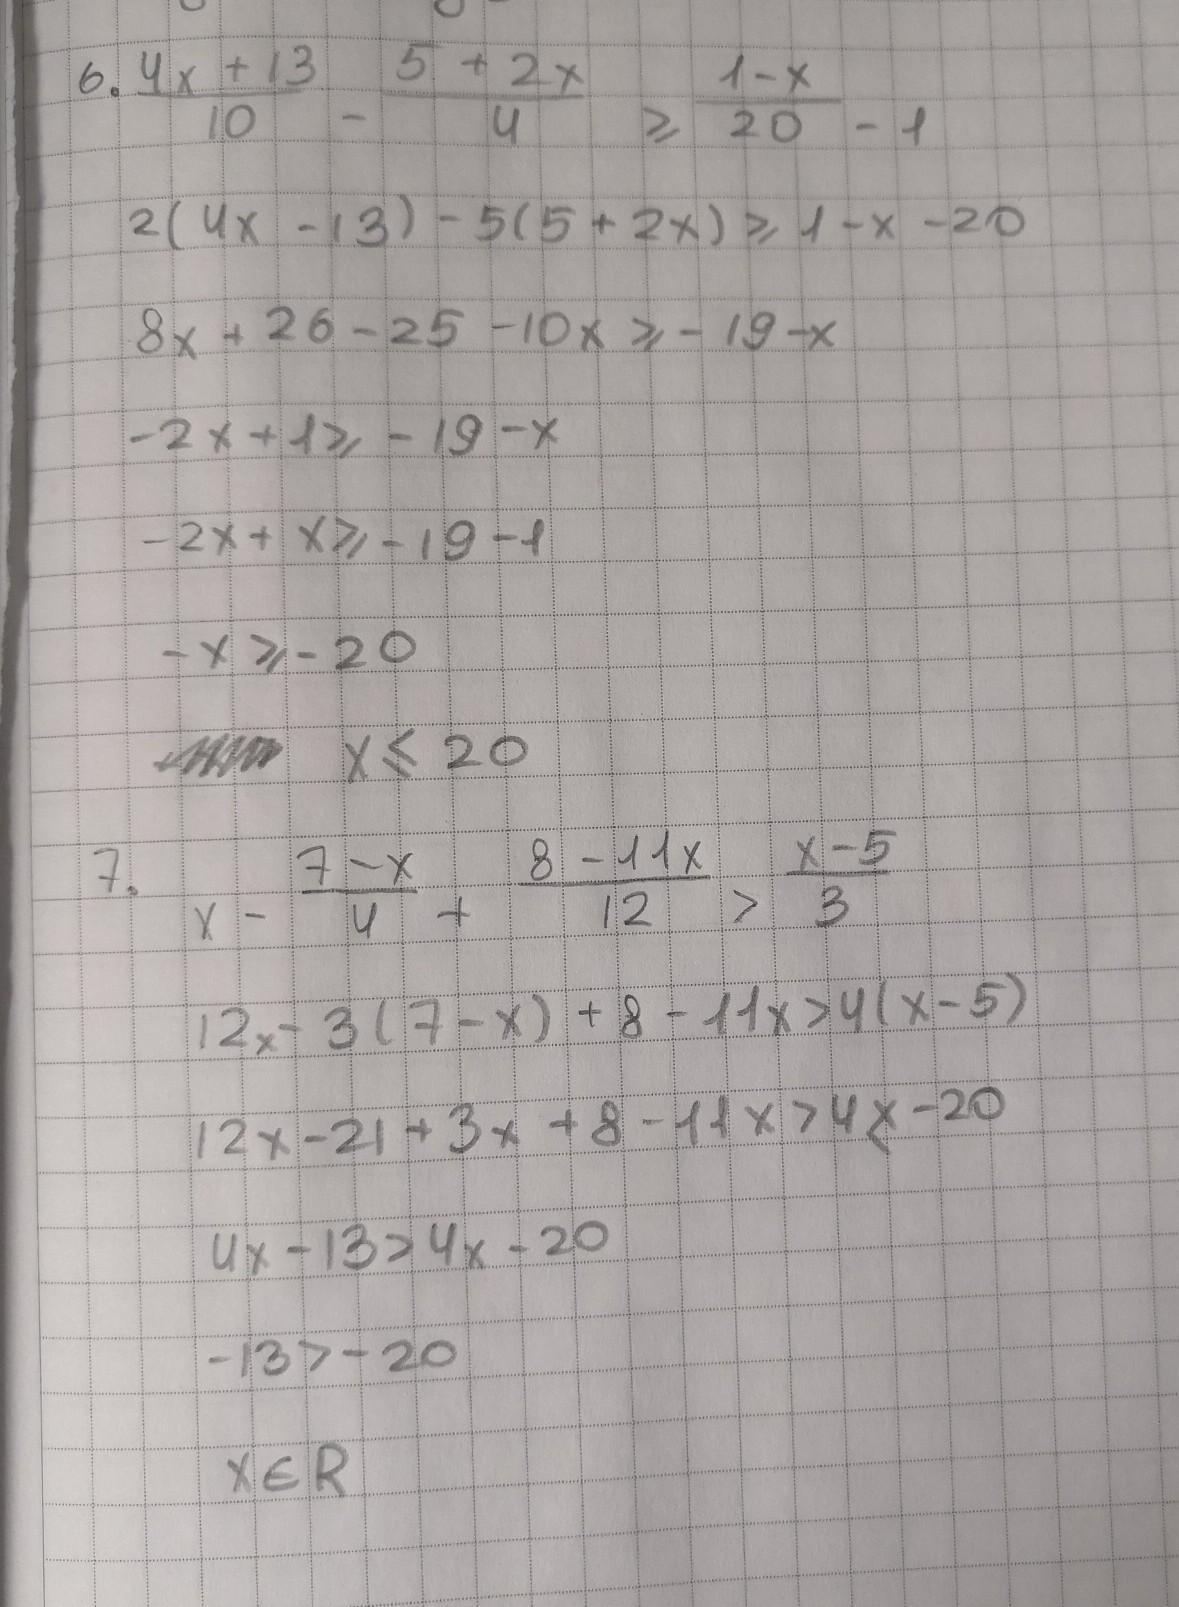 6. (4x + 13)/10 - (5 + 2x)/4 ⩾ (1-x)/20 - 1
2(4x - 13) - 5(5 + 2x) ⩾ 1 - x - 20
8x + 26 - 25 - 10x ⩾ - 19 - x
-2x + 1 ⩾ - 19 - x
-2x + x ⩾ - 19 - 1
-x ⩾ - 20
x ⩽ 20
7. x - (7 - x)/4 + (8 - 11x)/12 > (x - 5)/3
12x - 3(7 - x) + 8 - 11x > 4(x - 5)
12x - 21 + 3x + 8 - 11x > 4x - 20
4x - 13 > 4x - 20
-13 > - 20
x ∈ R